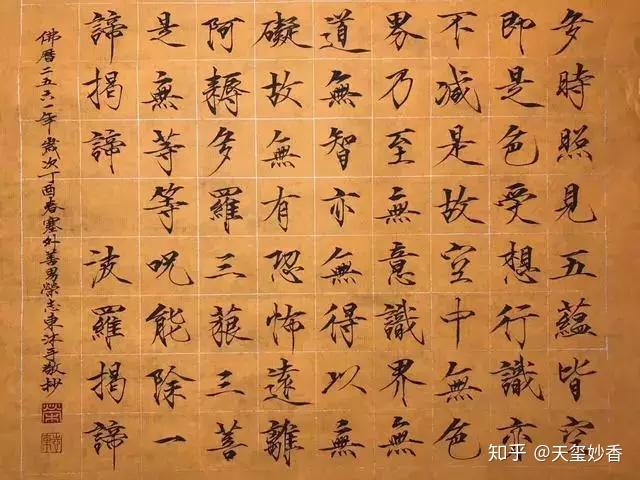 多時照見五蘊皆空
即是色受想行識亦
不減是故空中無色
界乃至無意識界無
道無智亦無得以無
礙故無有恐怖遠離
阿耨多羅三藐三菩
是無等等呪能除一
諦揭諦 波羅揭諦
佛曆二五六一年歲次丁酉春塞外善男榮志東沐手敬抄
知乎 @天玺妙香